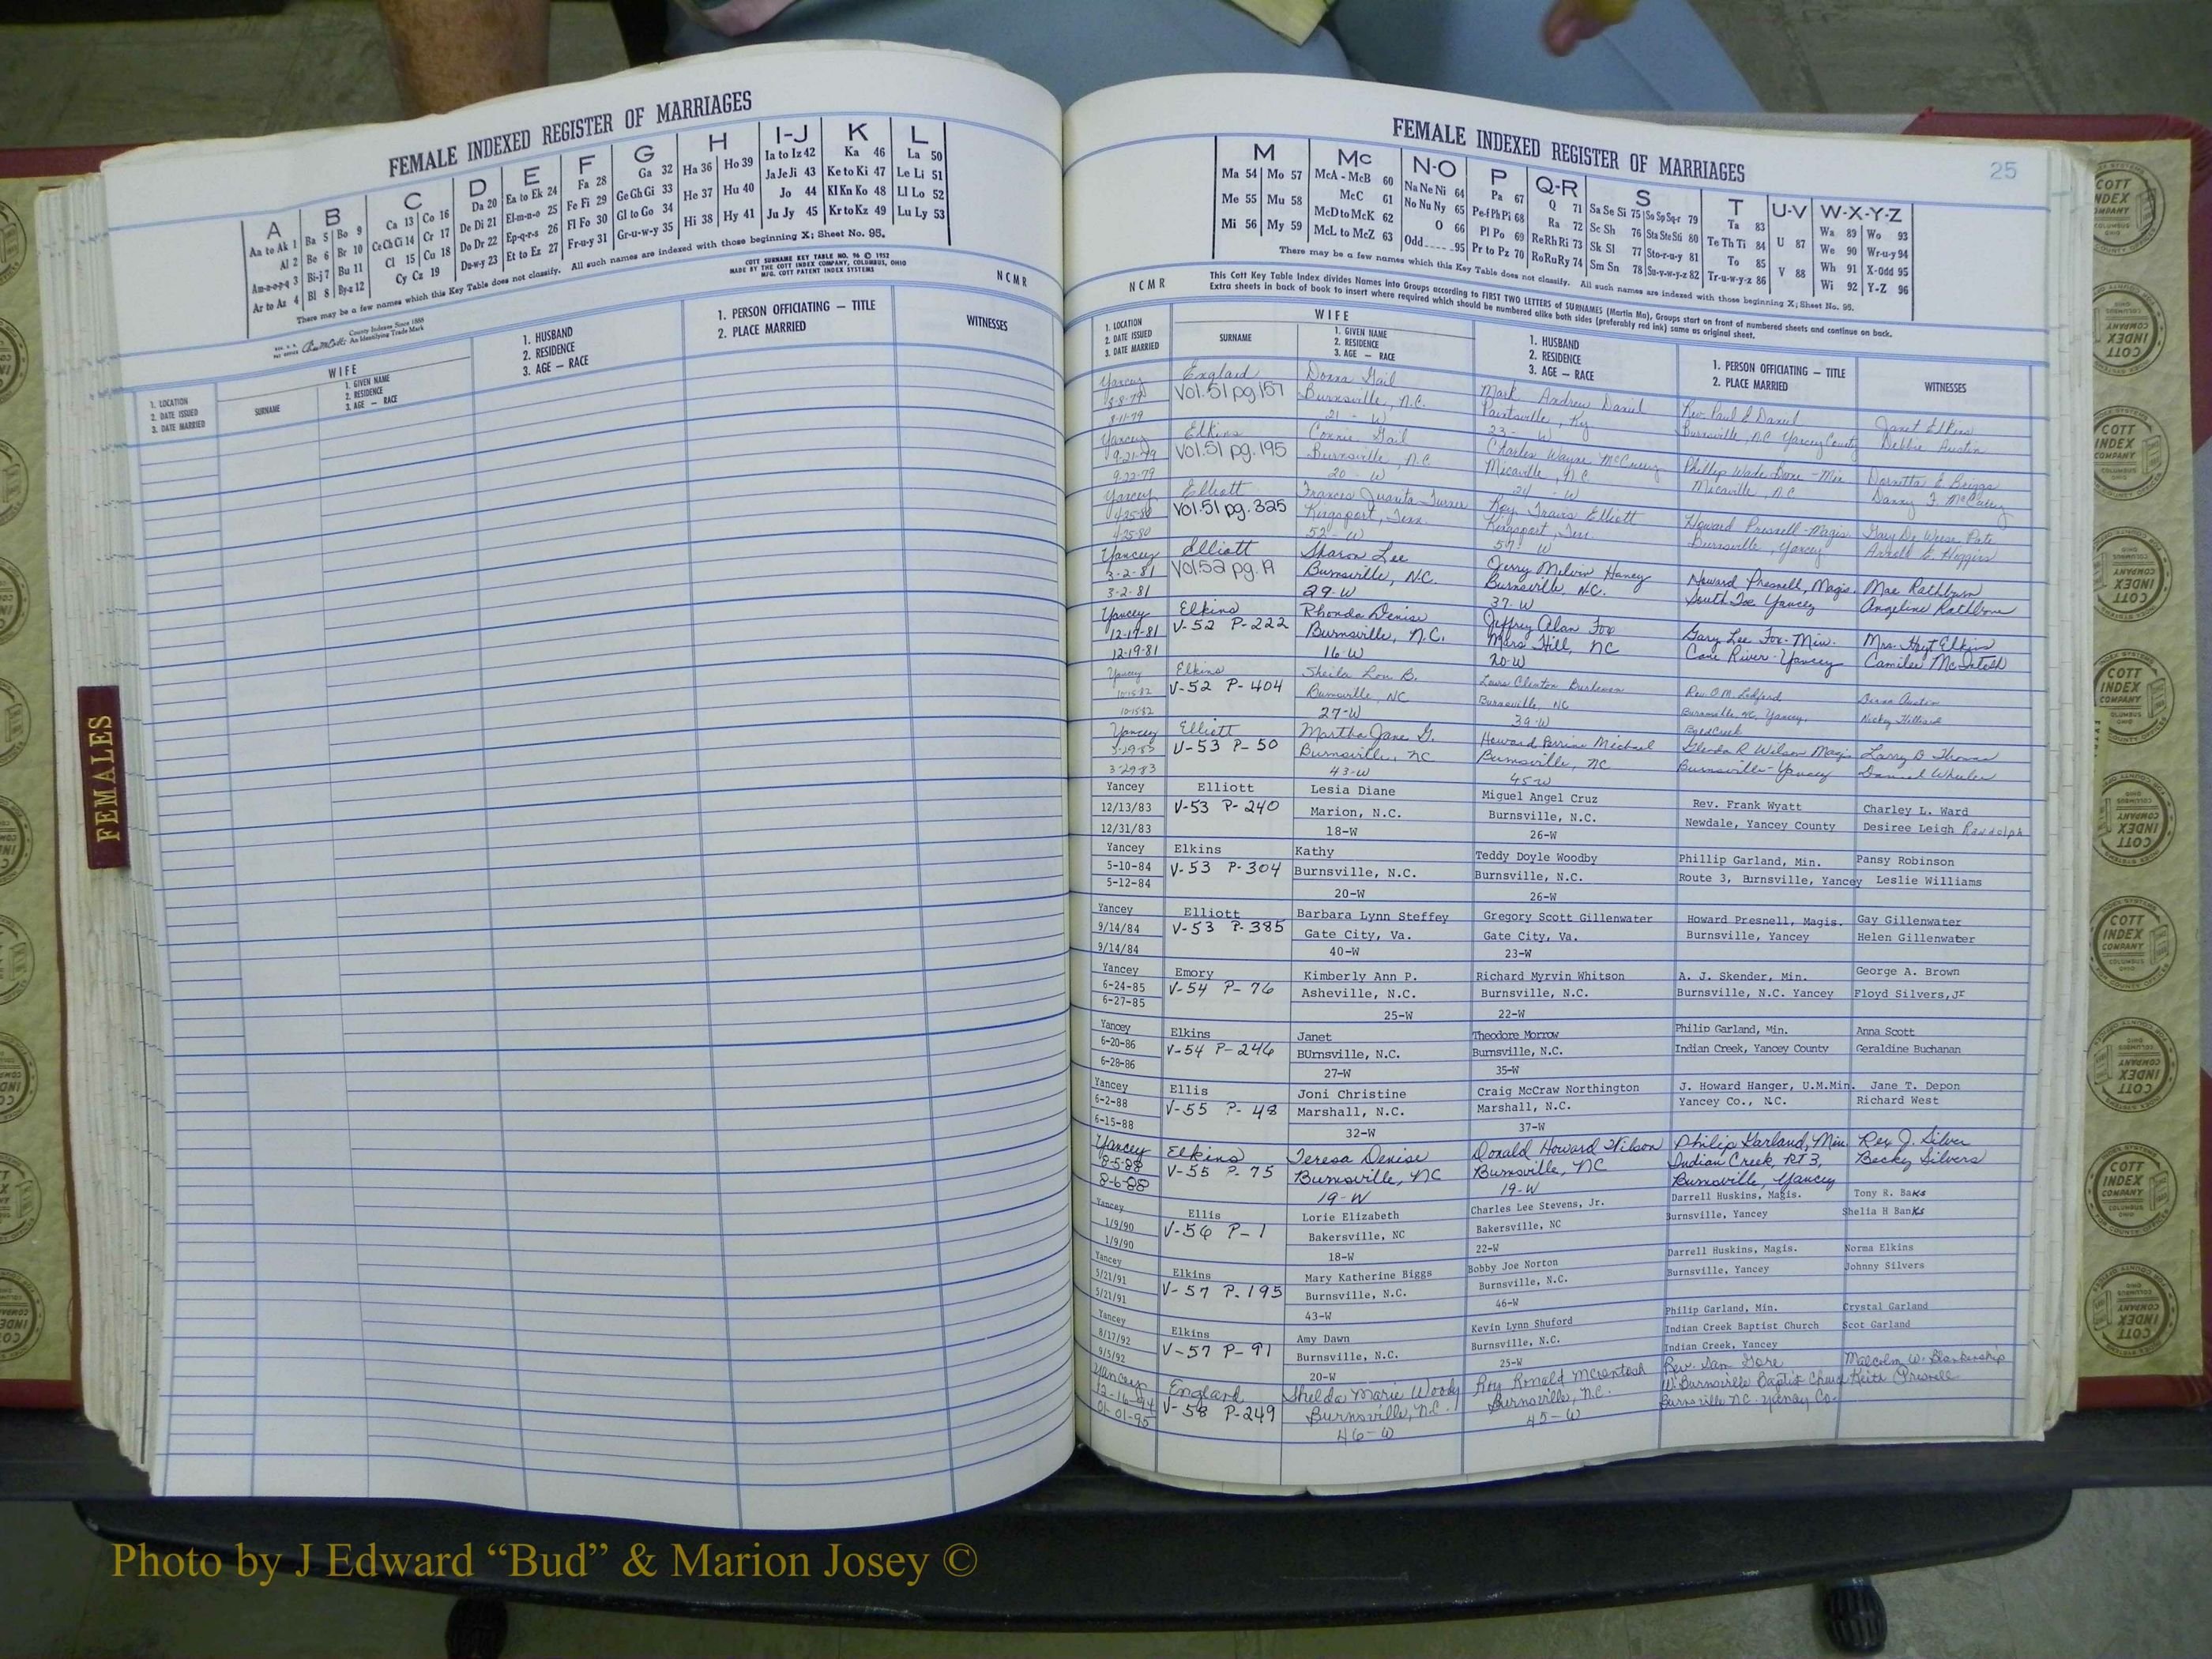 FEMALE INDEXED REGISTER OF MARRIAGES
A B C D E F G H I-J K L
Aa to Ak 1 Ba 5 Bo 9 Ca 13 Co 16 Da 20 Ea to Ek 24 Fa 28 Ga 32 Ha 36 Ho 39 Ia to Iz 42 Ka 46 La 50
Al 2 Be 6 Br 10 Ce Ch Ci 14 Cr 17 De Di 21 El-m-n-o 25 Fe Fi 29 Ge Gh Gi 33 He 37 Hu 40 Ja Je Ji 43 Ke to Ki 47 Le Li 51
Am-n-o-p-q 3 Bi-j 7 Bu 11 Cl 15 Cu 18 Do Dr 22 Ep-q-r-s 26 Fl Fo 30 Gl to Go 34 Hi 38 Hy 41 Jo 44 Kl Kn Ko 48 Ll Lo 52
Ar to Az 4 Bl 8 By-z 12 Cy Cz 19 Du-w-y 23 Et to Ez 27 Fr-u-y 31 Gr-u-w-y 35 Ju Jy 45 Kr to Kz 49 Lu Ly 53
There may be a few names which this Key Table does not classify. All such names are indexed with those beginning X; Sheet No. 95.
COTT SURNAME KEY TABLE NO. 96 © 1952
MADE BY THE COTT INDEX COMPANY, COLUMBUS, OHIO
MFG. COTT PATENT INDEX SYSTEMS
NCMR
County Indexes Since 1888
An Identifying Trade Mark
1. LOCATION
2. DATE ISSUED
3. DATE MARRIED
WIFE
SURNAME
1. GIVEN NAME
2. RESIDENCE
3. AGE — RACE
1. HUSBAND
2. RESIDENCE
3. AGE — RACE
1. PERSON OFFICIATING — TITLE
2. PLACE MARRIED
WITNESSES
FEMALES
FEMALE INDEXED REGISTER OF MARRIAGES
25
M Mc N-O P Q-R S T U-V W-X-Y-Z
Ma 54 Mo 57 McA - McB 60 Na Ne Ni 64 Pa 67 Q 71 Sa Se Si 75 So Sp Sq-r 79 Ta 83 U 87 Wa 89 Wo 93
Me 55 Mu 58 McC 61 No Nu Ny 65 Pe-f Ph Pi 68 Ra 72 Sc Sh 76 Sta Ste Sti 80 Te Th Ti 84 V 88 We 90 Wr-u-y 94
Mi 56 My 59 McD to McK 62 O 66 Pl Po 69 Re Rh Ri 73 Sk Sl 77 Sto-r-u-y 81 To 85 Wh 91 X-Odd 95
McL to McZ 63 Odd ---- 95 Pr to Pz 70 Ro Ru Ry 74 Sm Sn 78 Su-v-w-y-z 82 Tr-u-w-y-z 86 Wi 92 Y-Z 96
There may be a few names which this Key Table does not classify. All such names are indexed with those beginning X; Sheet No. 95.
NCMR
This Cott Key Table Index divides Names into Groups according to FIRST TWO LETTERS of SURNAMES (Martin Ma), Groups start on front of numbered sheets and continue on back.
Extra sheets in back of book to insert where required which should be numbered alike both sides (preferably red ink) same as original sheet.
1. LOCATION
2. DATE ISSUED
3. DATE MARRIED
WIFE
SURNAME
1. GIVEN NAME
2. RESIDENCE
3. AGE — RACE
1. HUSBAND
2. RESIDENCE
3. AGE — RACE
1. PERSON OFFICIATING — TITLE
2. PLACE MARRIED
WITNESSES
Yancey England Donna Gail Mark Andrew Daniel Rev. Paul E Daniel Janet Elkins
3-8-79 Vol. 51 pg 157 Burnsville, N.C. Paintsville, Ky Burnsville, NC Yancey County Debbie Austin
3-11-79 21 - W 23 - W
Yancey Elkins Connie Gail Charles Wayne McCurry Phillip Wade - Min Dornetta E Briggs
9-21-79 Vol. 51 pg. 195 Burnsville, N.C Micaville, N.C. Micaville N.C Danny F. McCurry
9-22-79 20 - W 24 - W
Yancey Elliott Frances Juanita Turner Roy Travis Elliott Howard Presnell-Magis Gary De Weese Pate
4-25-80 Vol. 51 pg. 325 Kingsport, Tenn. Kingsport, Ten Burnsville, Yancey E. Higgins
4-25-80 52 - W 57- W
Yancey Elliott Sharon Lee Jerry Melvin Haney Howard Presnell, Magis. Mae Rathburn
3-2-81 Vol. 52 pg. 19 Burnsville, N.C. Burnsville, N.C. South Toe Yancey Angeline Rathbone
3-2-81 29-W 37-W
Yancey Elkins Rhonda Denise Jeffrey Alan Fox Gary Lee Fox-Min. Mrs. Hoyt Elkins
12-17-81 V-52 P-222 Burnsville, N.C. Mars Hill, NC Cane River-Yancey Camilee McIntosh
12-19-81 16-W 20-W
Yancey Elkins Sheila Lou B. Clinton Rev. O.M. Ledford Austin
10-15-82 V-52 P-404 Burnsville, NC Burnsville, NC Burnsville, NC, Yancey, Nicky Hilliard
10-15-82 27-W 39-W
Yancey Elliott Martha Jane G. Howard Perrin Michael Glenda R Wilson Magis Larry D Thomas
3-29-83 V-53 P-50 Burnsville, NC Burnsville, NC Burnsville-Yancey Daniel Wheeler
3-29-83 43-W 45-W
Yancey Elliott Lesia Diane Miguel Angel Cruz Rev. Frank Wyatt Charley L. Ward
12/13/83 V-53 P-240 Marion, N.C. Burnsville, N.C. Newdale, Yancey County Desiree Leigh Randolph
12/31/83 18-W 26-W
Yancey Elkins Kathy Teddy Doyle Woodby Phillip Garland, Min. Pansy Robinson
5-10-84 V-53 P-304 Burnsville, N.C. Burnsville, N.C. Route 3, Burnsville, Yancey Leslie Williams
5-12-84 20-W 26-W
Yancey Elliott Barbara Lynn Steffey Gregory Scott Gillenwater Howard Presnell, Magis. Gay Gillenwater
9/14/84 V-53 P-385 Gate City, Va. Gate City, Va. Burnsville, Yancey Helen Gillenwater
9/14/84 40-W 23-W
Yancey Emory Kimberly Ann P. Richard Myrvin Whitson A. J. Skender, Min. George A. Brown
6-24-85 V-54 P-76 Asheville, N.C. Burnsville, N.C. Burnsville, N.C. Yancey Floyd Silvers, Jr
6-27-85 25-W 22-W
Yancey Elkins Janet Theodore Morrow Philip Garland, Min. Anna Scott
6-20-86 V-54 P-246 BUrnsville, N.C. Burnsville, N.C. Indian Creek, Yancey County Geraldine Buchanan
6-28-86 27-W 35-W
Yancey Ellis Joni Christine Craig McCraw Northington J. Howard Hanger, U.M.Min. Jane T. Depon
6-2-88 V-55 P-48 Marshall, N.C. Marshall, N.C. Yancey Co., N.C. Richard West
6-15-88 32-W 37-W
Yancey Elkins Teresa Denise Donald Howard Wilson Philip Garland, Min Rex J. Silver
8-5-88 V-55 P-75 Burnsville, NC Burnsville, NC Indian Creek, RT 3, Becky Silvers
8-6-88 19-W 19-W Burnsville, Yancey
Yancey Ellis Lorie Elizabeth Charles Lee Stevens, Jr. Darrell Huskins, Magis. Tony R. Banks
1/9/90 V-56 P-1 Bakersville, NC Bakersville, NC Burnsville, Yancey Shelia H Banks
1/9/90 18-W 22-W
Yancey Elkins Mary Katherine Biggs Bobby Joe Norton Darrell Huskins, Magis. Norma Elkins
5/21/91 V-57 P.195 Burnsville, N.C. Burnsville, N.C. Burnsville, Yancey Johnny Silvers
5/21/91 43-W 46-W
Yancey Elkins Amy Dawn Kevin Lynn Shuford Philip Garland, Min. Crystal Garland
8/17/92 V-57 P-91 Burnsville, N.C. Burnsville, N.C. Indian Creek Baptist Church Scot Garland
9/5/92 20-W 25-W Indian Creek, Yancey
Yancey England Shelda Marie Woody Roy Ronald McIntosh Rev. Dan Gore Malcolm W. Blankenship
12-16-94 V-58 P-249 Burnsville, N.C. Burnsville, N.C. W. Burnsville Baptist Church Keith Presnell
01-01-95 46-W 45-W Burnsville NC. Yancey Co.
COTT INDEX COMPANY COLUMBUS OHIO
Photo by J Edward “Bud” & Marion Josey ©